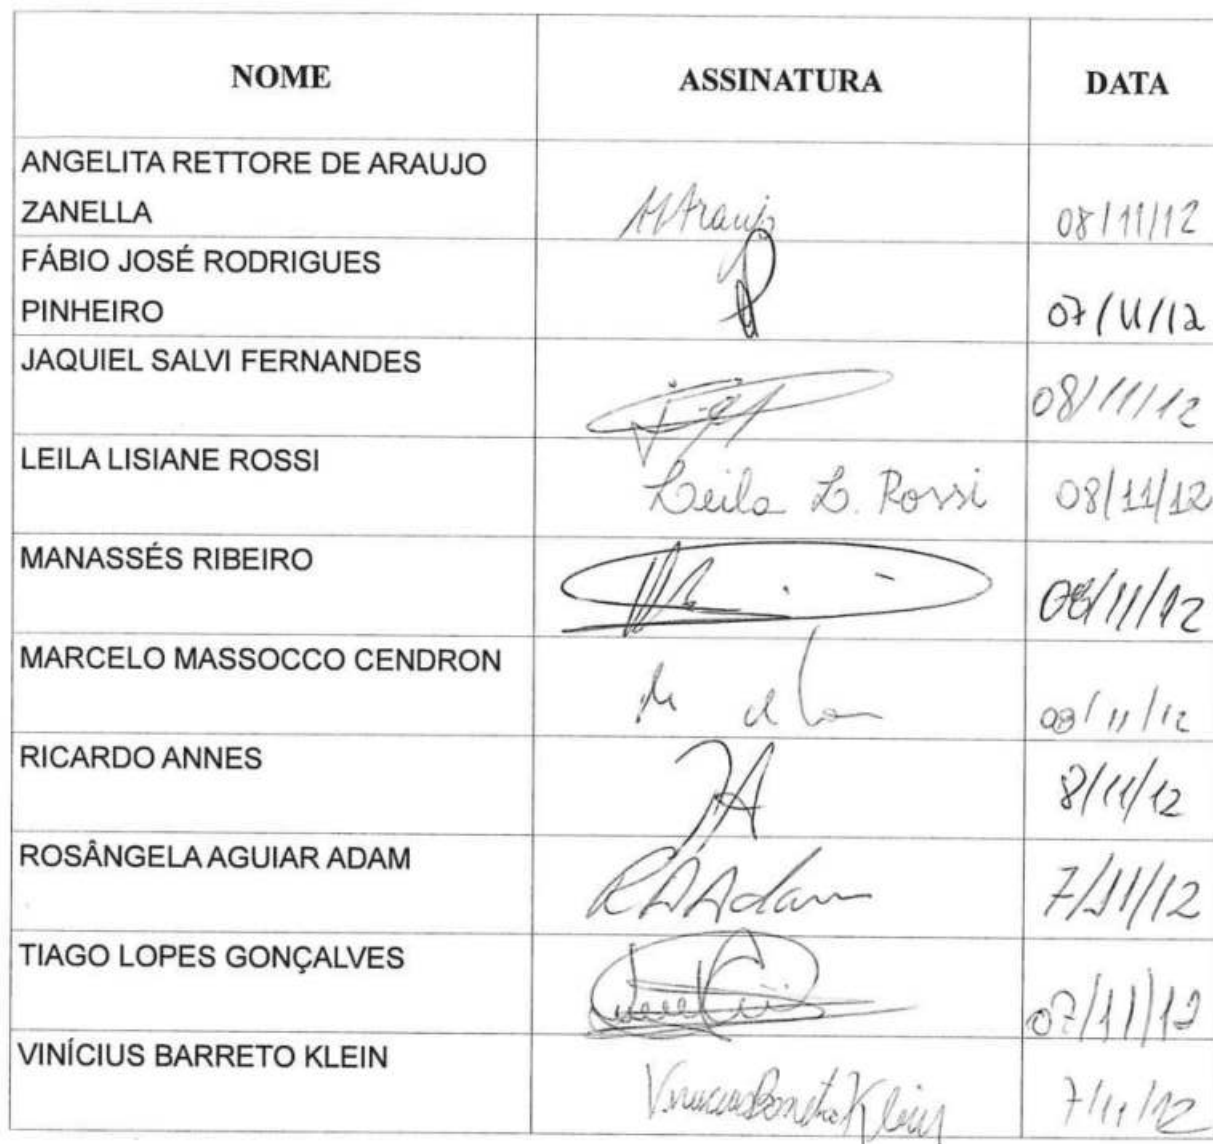 NOME ASSINATURA DATA
ANGELITA RETTORE DE ARAUJO
ZANELLA Araujo 08/11/12
FÁBIO JOSÉ RODRIGUES
PINHEIRO 07/11/12
JAQUIEL SALVI FERNANDES
08/11/12
LEILA LISIANE ROSSI
Leila L. Rossi 08/11/12
MANASSÉS RIBEIRO
08/11/12
MARCELO MASSOCCO CENDRON
08/11/12
RICARDO ANNES
8/11/12
ROSÂNGELA AGUIAR ADAM
RAAdam 7/11/12
TIAGO LOPES GONÇALVES
07/11/12
VINÍCIUS BARRETO KLEIN
Vinicius Barreto Klein 7/11/12